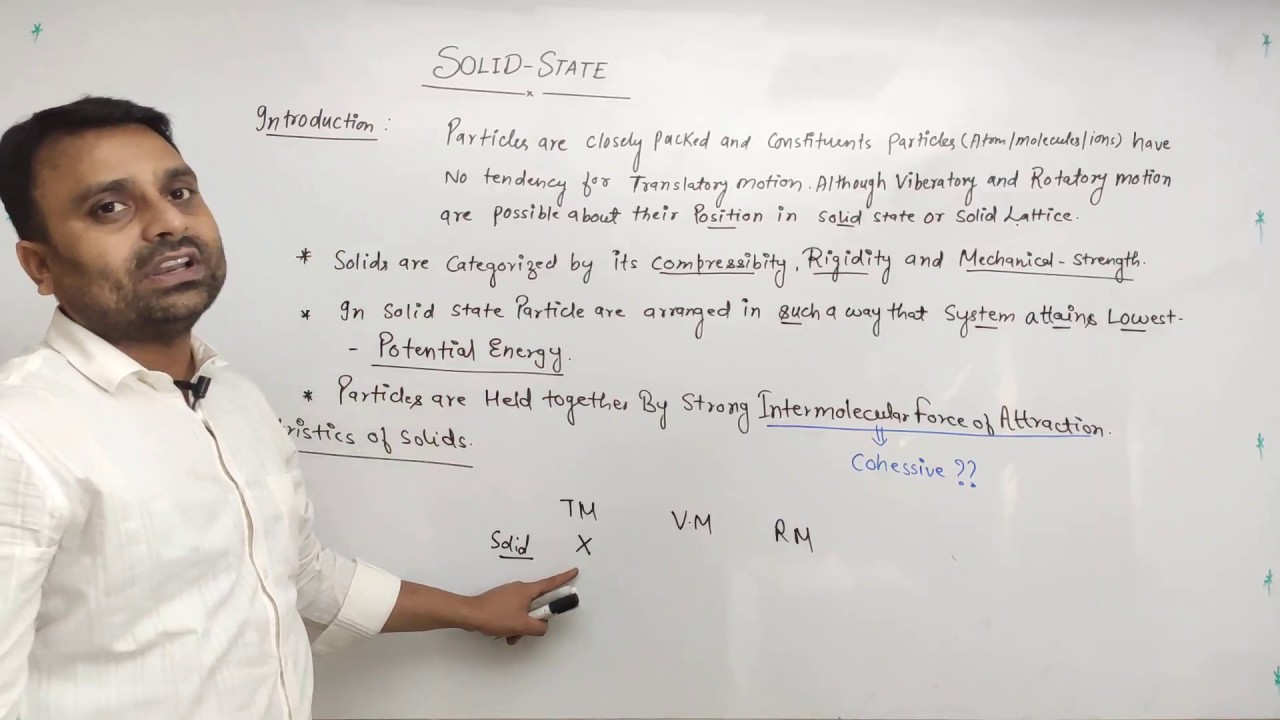 SOLID-STATE
Introduction: Particles are closely packed and Constituents particles (Atom/molecules/ions) have
No tendency for Translatory motion. Although Viberatory and Rotatory motion
are possible about their Position in solid state or Solid Lattice.
* Solids are Categorized by its Compressibity, Rigidity and Mechanical-Strength.
* In Solid state Particle are arranged in such a way that System attains Lowest-
- Potential Energy.
* Particles are Held together By Strong Intermolecular force of Attraction.
ristics of Solids.
⇓
Cohessive ??
TM V.M RM
Solid X